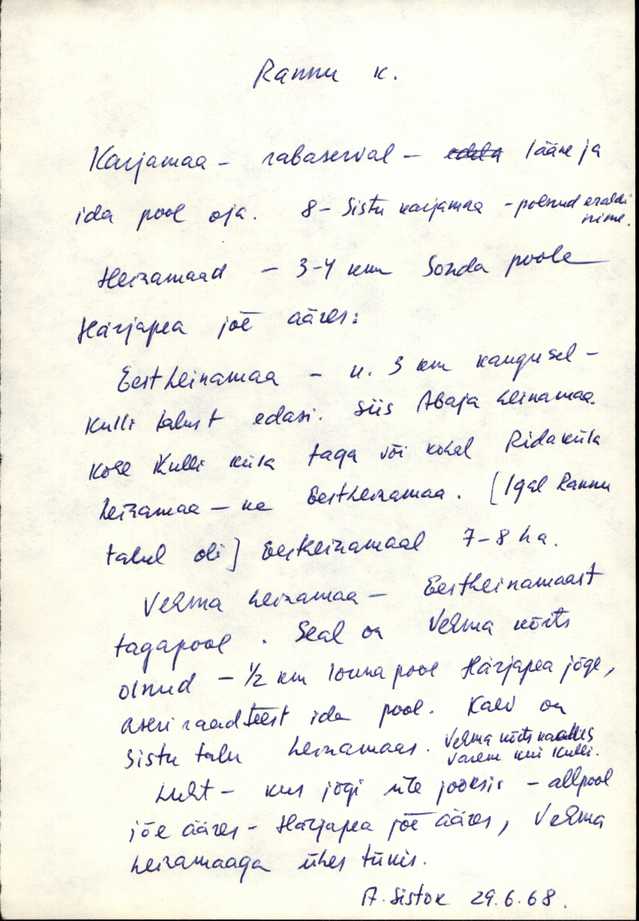 Rannu k.
Karjamaa – rabaserval – edela lääne ja
ida pool oja. 8 – Sistu karjamaa – polnud eraldi
nime.
Heinamaad – 3-4 km Sonda poole
Härjapea jõe ääres:
Eestheinamaa – u. 3 km kaugusel –
Kulli talust edasi. Siis Abaja heinamaa.
Kohe Kulli küla taga või kohal Ridaküla
heinamaa – ka Eestheinamaa. [Igal Rannu
talul oli] Eestheinamaal 7-8 ha.
Velma heinamaa – Eestheinamaast
tagapool. Seal on Velma kõrts
olnud – 1/2 km lõuna pool Härjapea jõge,
Aseri raudteest ida pool. Kaev on
Sistu talu heinamaas. Velma kõrts kaotas
varem kui Kulli.
Luht – kus jõgi üle jooksis – allpool
jõe ääres – Härjapea jõe ääres, Velma
heinamaaga ühes tükis.
A. Sistok 29.6.68.